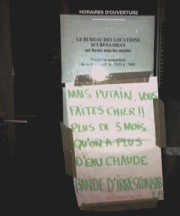 HORAIRES D'OUVERTURE
LE BUREAU DES LOCATIONS
est fermé tous les matins
MAIS PUTAIN, VOUS
FAITES CHIER!!
PLUS DE 3 MOIS
QU'ON A PLUS
D'EAU CHAUDE
BANDE D'IRRESPONSABLES